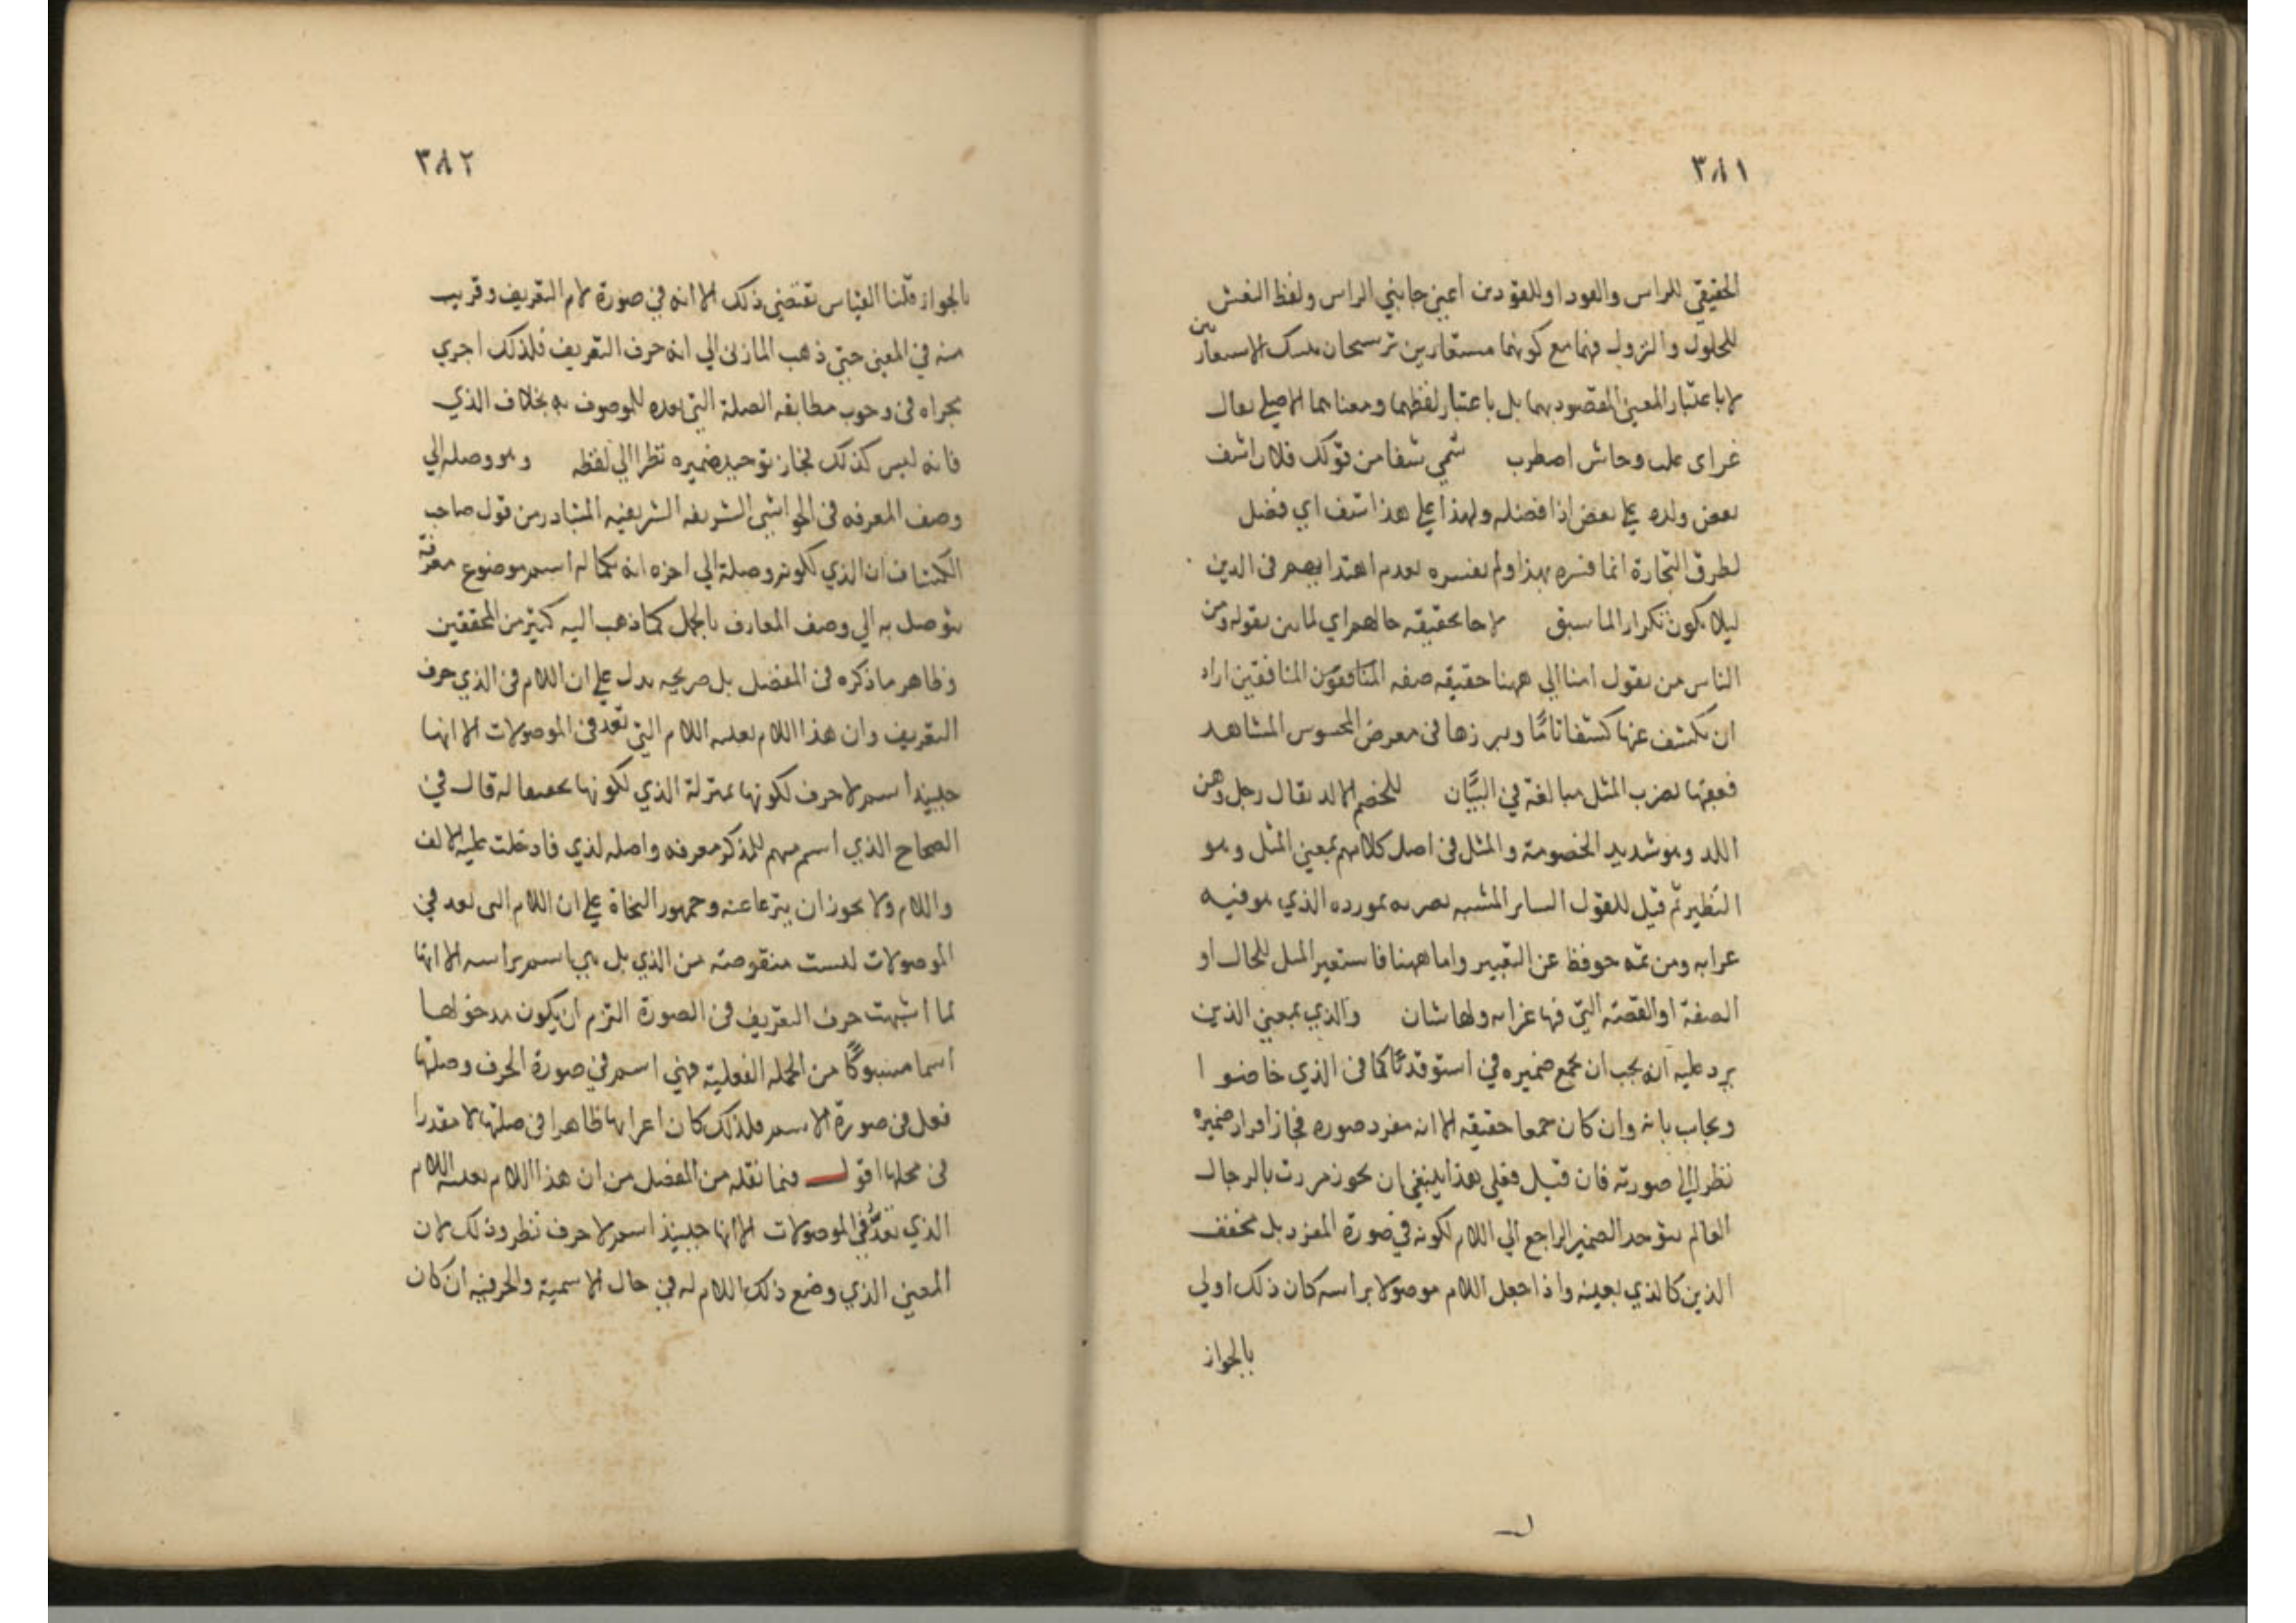 ٣٨١
الحقيقي للراس والعود او للفودين اعني جانبي الراس ولفظ التعشيش
للحلول والنزول فهما مع كونهما مستعارين ترشيحان لتلك الاستعارتين
لا باعتبار المعنى المقصود بهما بل باعتبار لفظهما ومعناهما الاصلي يقال
غراى علب وجاش اضطرب شمي شفا من قولك فلان اشف
بعض ولده علي بعض اذا فضله ولهذا علي هذا شف اي فضل
لطرق التجارة انما فسره بهذا ولم يفسره بعدم اهتدايهم في الدين
ليلا يكون تكرارا لما سبق لا جا بحقيقه حالهم اي لما بين بقوله ومن
الناس من يقول امنا الي ههنا حقيقه صفه المنافقون المنافقين اراد
ان يكشف عنها كشفا تامًا ويبرزها في معرض المحسوس المشاهد
فعقبها بضرب المثل مبالغة في البيان للخصم الالد يقال رجل وهن
اللد وهو شديد الخصومة والمثل في اصل كلامهم بمعني المثل وهو
النظير ثم قيل للقول الساير المشبه مضربه بمورده الذي هو فيه
غرابه ومن ثمه حوفظ عن التغيير واما ههنا فاستعير المثل للحال او
الصفة او القصة التي فيها غرابه ولها شان والذي بمعني الذين
يرد عليه انه يجب ان يجمع ضميره في استوقد نارًا كما في الذي خاضوا
ويجاب بانه وان كان جمعا حقيقه الا انه مفرد صوره فجاز افراد ضميره
نظرا الي صورته فان قيل فعلي هذا ينبغي ان يجوز مررت بالرجال
العالم بتوحد الضمير الراجع الي اللام لكونه في صورة المفرد بل مخفف
الذين كالذي بعينه واذا جعل اللام موصولا براسه كان ذلك اولي
بالجواز
٣٨٢
بالجواز قلنا القياس تقتضي ذلك الا انه في صورة لام التعريف وقريب
منه في المعني حتي ذهب المازني الي انه حرف التعريف فلذلك اجري
مجراه في وجوب مطابقه الصلة التي بعده للموصوف به بخلاف الذي
فانه ليس كذلك فجاز توحيد ضميره نظرا الي لفظه وهو وصله الي
وصف المعرفه في الحواشي الشريفه الشريفيه المتبادر من قول صاحب
الكشاف ان الذي لكونه وصلة الي اخره انه بكماله اسم موضوع معرفة
يتوصل به الي وصف المعارف بالجمل كما ذهب اليه كثير من المحققين
وظاهر ما ذكره في المفصل بل صريحه يدل علي ان اللام في الذي حرف
التعريف وان هذا اللام بعينه اللام التي تعد في الموصولات الا انها
حينيذ اسم لا حرف لكونها بمنزلة الذي لكونها تخفيفا له قال في
الصحاح الذي اسم مبهم للمذكر معرفه واصله لذي فادخلت عليه الالف
واللام ولا يجوز ان ينزعا عنه وجمهور النحاة علي ان اللام التي تعد في
الموصولات ليست منقوصة من الذي بل هي اسم براسه الا انها
لما اشبهت حرف التعريف في الصورة التزم ان يكون مدخولها
اسما مسبوكًا من الجمله الفعلية فهي اسم في صورة الحرف وصلتها
فعل في صورة الاسم فلذلك كان اعرابها ظاهرا في صلتها لا مقدرا
في محلها اقول فيما نقله من المفصل من ان هذا اللام بعينه اللام
الذي تعد في الموصولات الا انها حينيذ اسم لا حرف نظر وذلك لان
المعني الذي وضع ذلك اللام له في حال الاسمية والحرفيه ان كان